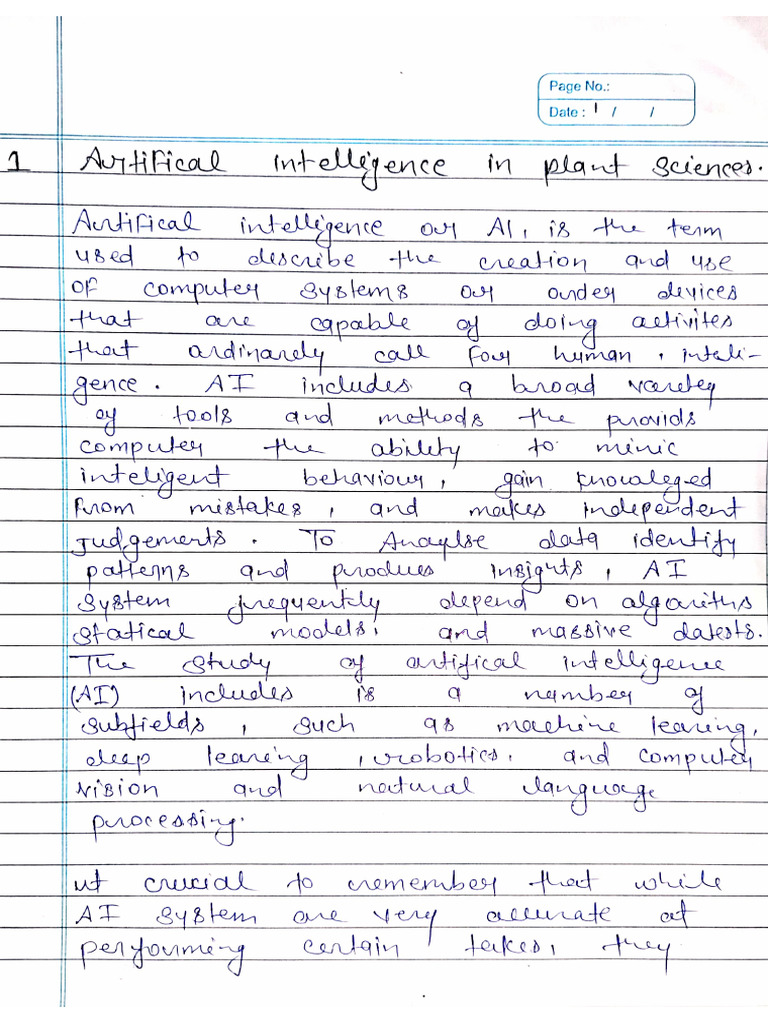 Page No.:
Date : / /
1 Artifical intelligence in plant sciences.
Artifical intelligence or AI, is the term
used to describe the creation and use
of computer systems or order devices
that are capable of doing activites
that ardinarely call for human, inteli-
gence. AI includes a broad varetey
of tools and methods the provids
computer the ability to mimic
inteligent behaviour, gain knowleged
from mistakes, and makes independent
judgements. To Anaylse data identify
patterns and produes insights, AI
system frequentkly depend on algoriths
statical models, and massive datests.
The study of artifical intelligence
(AI) includes is a number of
subfields, such as machine learing,
deep learing, robotics. and computer
vision and natural language
processing.
ut crucial to remember that while
AI system are very accurate at
performing certain takes, they